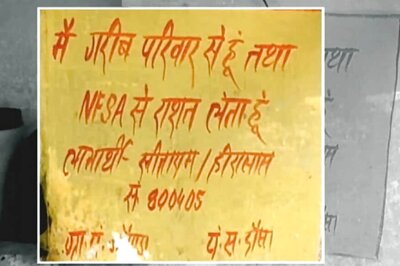 मै गरीब परिवार से हूं तथा
NFSA से राशन लेता हूं
लाभार्थी- सीताराम / हीरालाल
से 800405
ग्रा. पं. पं. स. दौसा